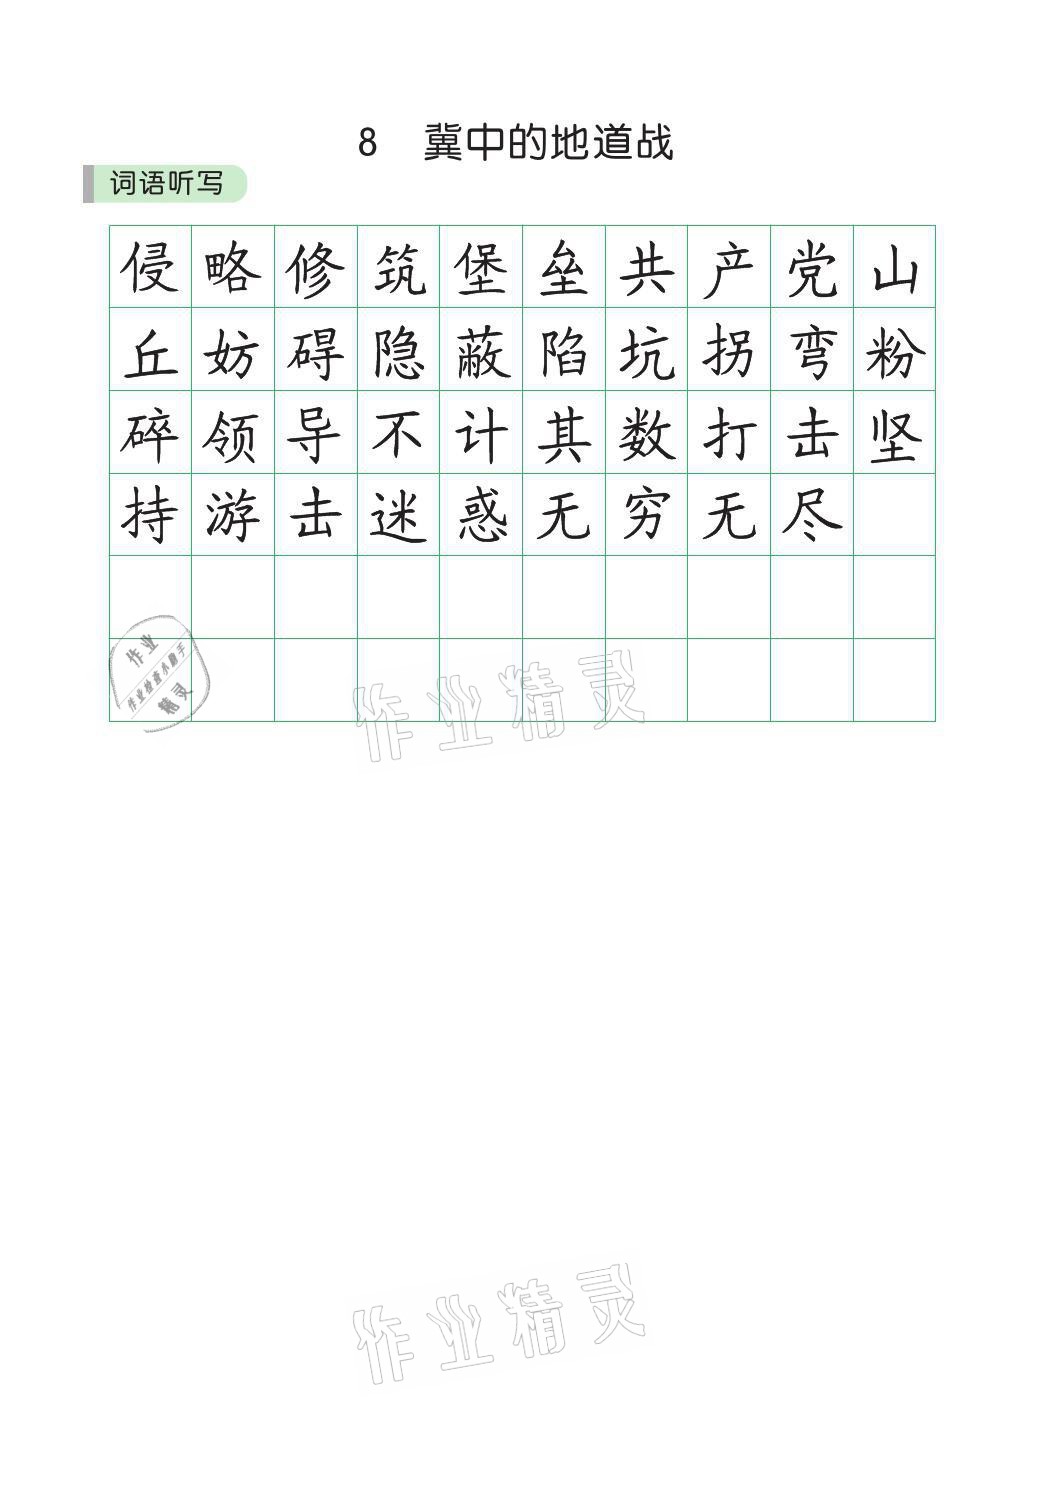 8 冀中的地道战
词语听写
侵略修筑堡垒共产党山
丘妨碍隐蔽陷坑拐弯粉
碎领导不计其数打击坚
持游击迷惑无穷无尽
作业
作业检查小助手
精灵
作业精灵
作业精灵